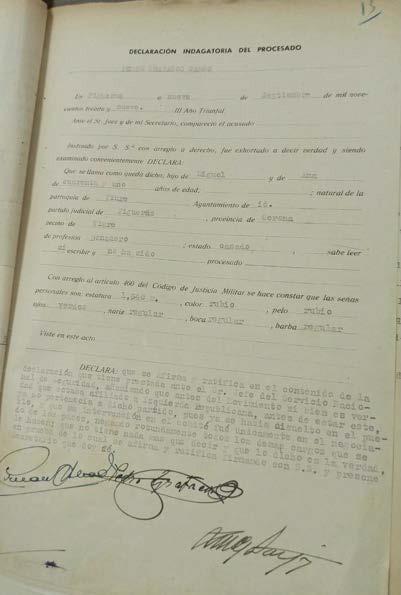 13
DECLARACIÓN INDAGATORIA DEL PROCESADO
PEDRO
En Figueras a nueve de Septiembre de mil nove-
cientos treinta y nueve. III Año Triunfal.
Ante el Sr. Juez y de mi Secretario, compareció el acusado
Instruido por S. S.ª con arreglo a derecho, fue exhortado a decir verdad y siendo
examinado convenientemente DECLARA:
Que se llama como queda dicho; hijo de Miguel y de Ana
de cuarenta y uno años de edad, ; natural de la
parroquia de Ayuntamiento de id.
partido judicial de Figueras , provincia de Gerona
vecino de
de profesión ; estado casado , sabe leer
si escribir y no ha sido procesado
Con arreglo al artículo 460 del Código de Justicia Militar se hace constar que las señas
personales son: estatura m. , color rubio , pelo rubio
ojos verdes , nariz regular , boca regular , barba regular
Viste en este acto
DECLARA: que se afirma y ratifica en el contenido de la
declaración que tiene prestada ante el Sr. Jefe del Servicio Nacio-
nal de Seguridad, añadiendo que antes del Movimiento si bien es ver-
dad que estaba afiliado a Izquierda Republicana, antes de estar
ya no pertenecía a dicho partido, pues ya se había disuelto en el pue-
blo, y que su intervención en el comité fué únicamente en el negocia-
do de los panes, negando rotundamente todos los demas cargos que se
le hacen; que no tiene nada mas que decir y que lo dicho es la verdad,
en prueba de lo cual se afirma y ratifica firmando con S.S. y presente
Secretario que doy fé.